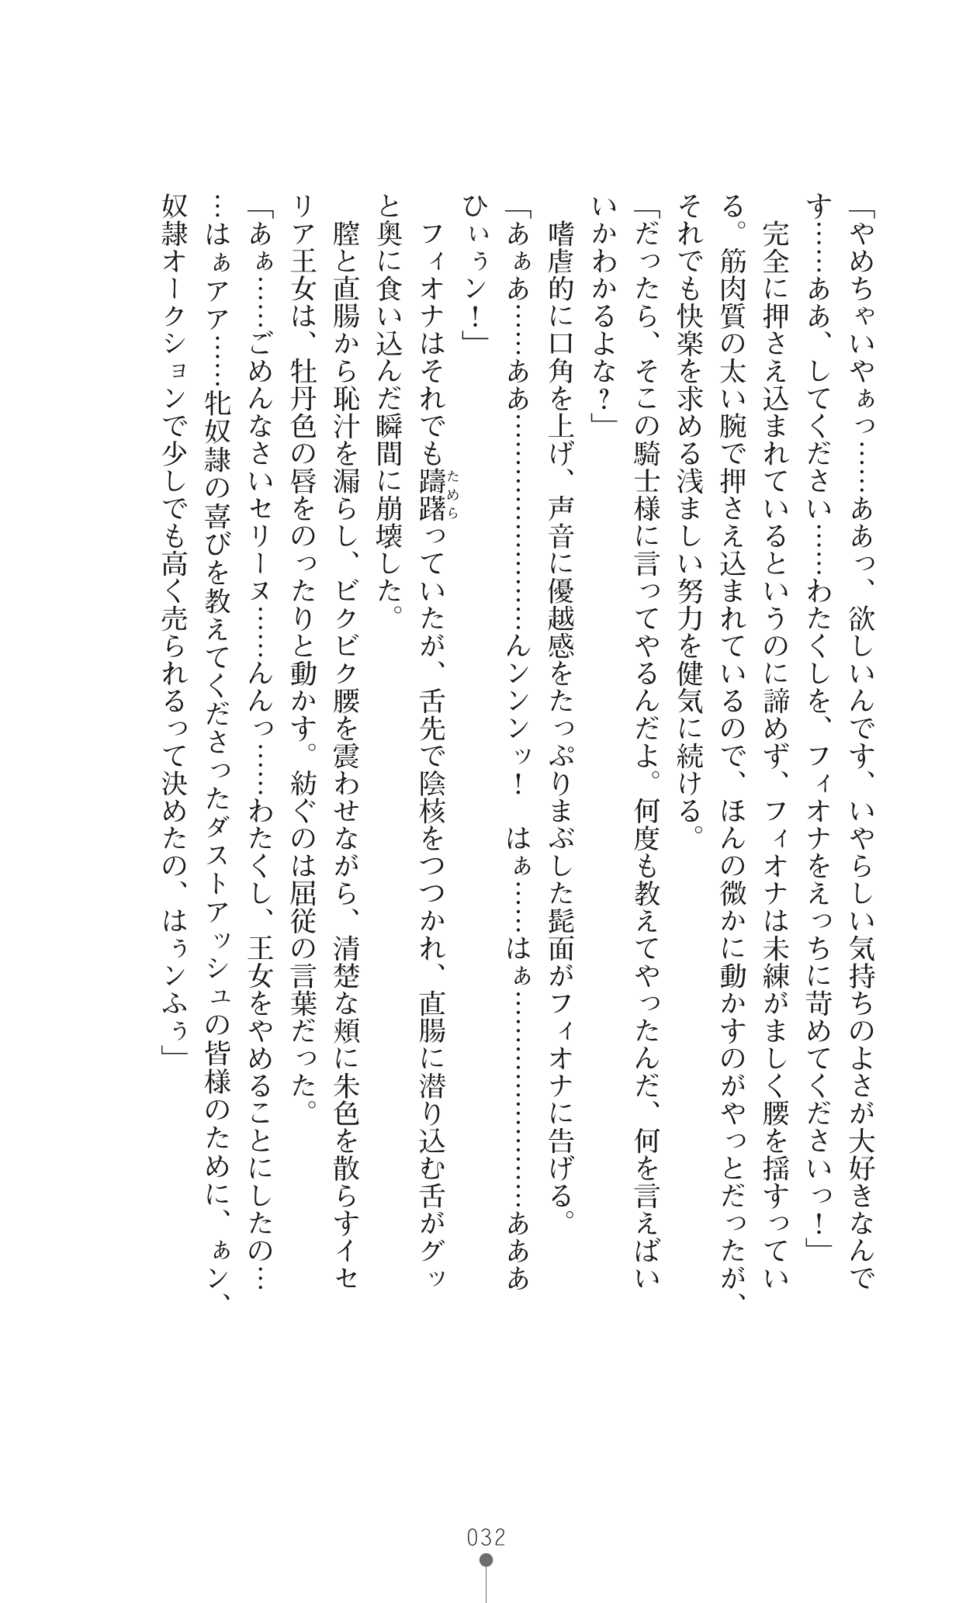 「やめちゃいやぁっ……ああっ、欲しいんです、いやらしい気持ちのよさが大好きなんで
す……ああ、してください……わたくしを、フィオナをえっちに苛めてくださいっ！」
　完全に押さえ込まれているというのに諦めず、フィオナは未練がましく腰を揺すってい
る。筋肉質の太い腕で押さえ込まれているので、ほんの微かに動かすのがやっとだったが、
それでも快楽を求める浅ましい努力を健気に続ける。
「だったら、そこの騎士様に言ってやるんだよ。何度も教えてやったんだ、何を言えばい
いかわかるよな？」
　嗜虐的に口角を上げ、声音に優越感をたっぷりまぶした髭面がフィオナに告げる。
「あぁあ……ああ……………………んンンンッ！　はぁ……はぁ……………………あああ
ひぃぅン！」
　フィオナはそれでも躊躇ためらっていたが、舌先で陰核をつつかれ、直腸に潜り込む舌がグッ
と奥に食い込んだ瞬間に崩壊した。
　膣と直腸から恥汁を漏らし、ビクビク腰を震わせながら、清楚な頬に朱色を散らすイセ
リア王女は、牡丹色の唇をのったりと動かす。紡ぐのは屈従の言葉だった。
「あぁ……ごめんなさいセリーヌ……んんっ……わたくし、王女をやめることにしたの…
…はぁアア……牝奴隷の喜びを教えてくださったダストアッシュの皆様のために、ぁン、
奴隷オークションで少しでも高く売られるって決めたの、はぅンふぅ」
032